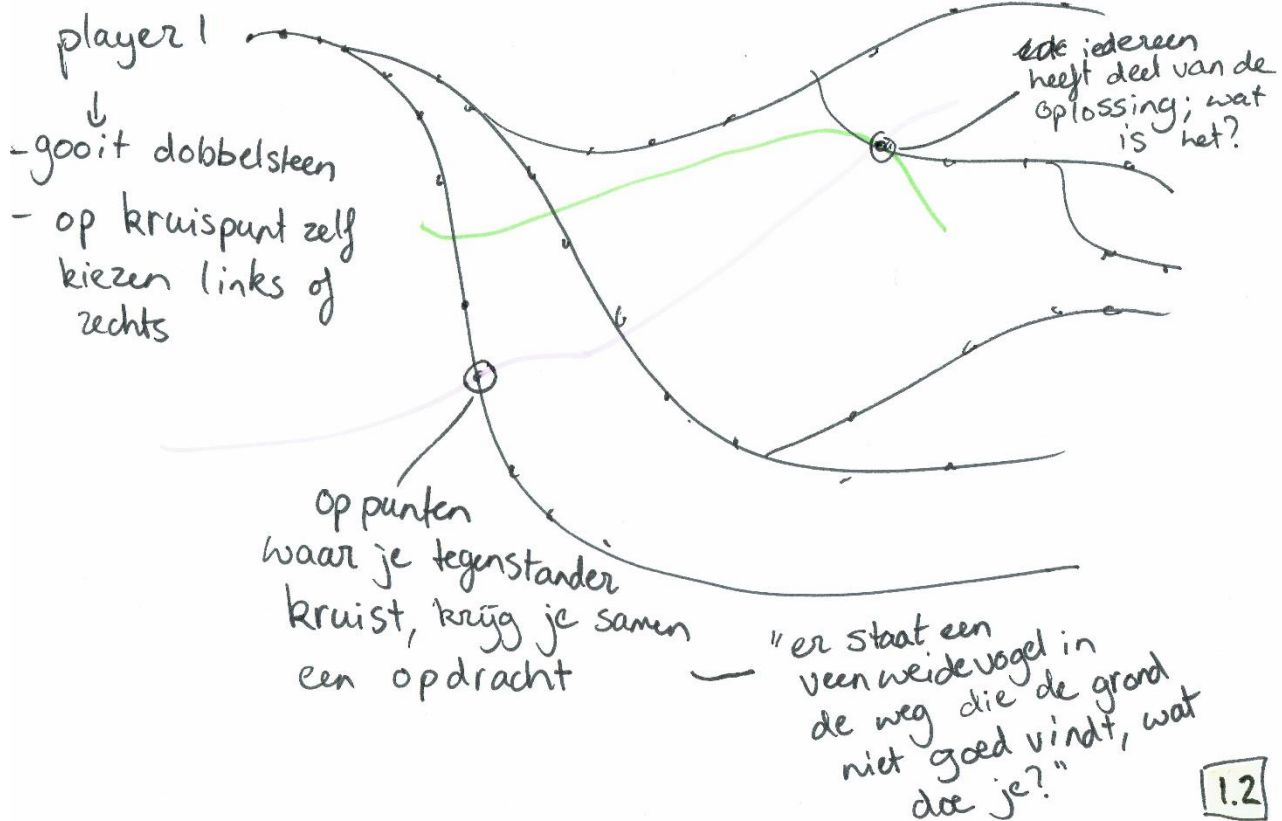 player 1
- gooit dobbelsteen
- op kruispunt zelf
kiezen links of
rechts
iedereen
heeft deel van de
oplossing; wat
is het?
op punten
waar je tegenstander
kruist, krijg je samen
een opdracht
"er staat een
veenweidevogel in
de weg die de grond
niet goed vindt, wat
doe je?"
1.2